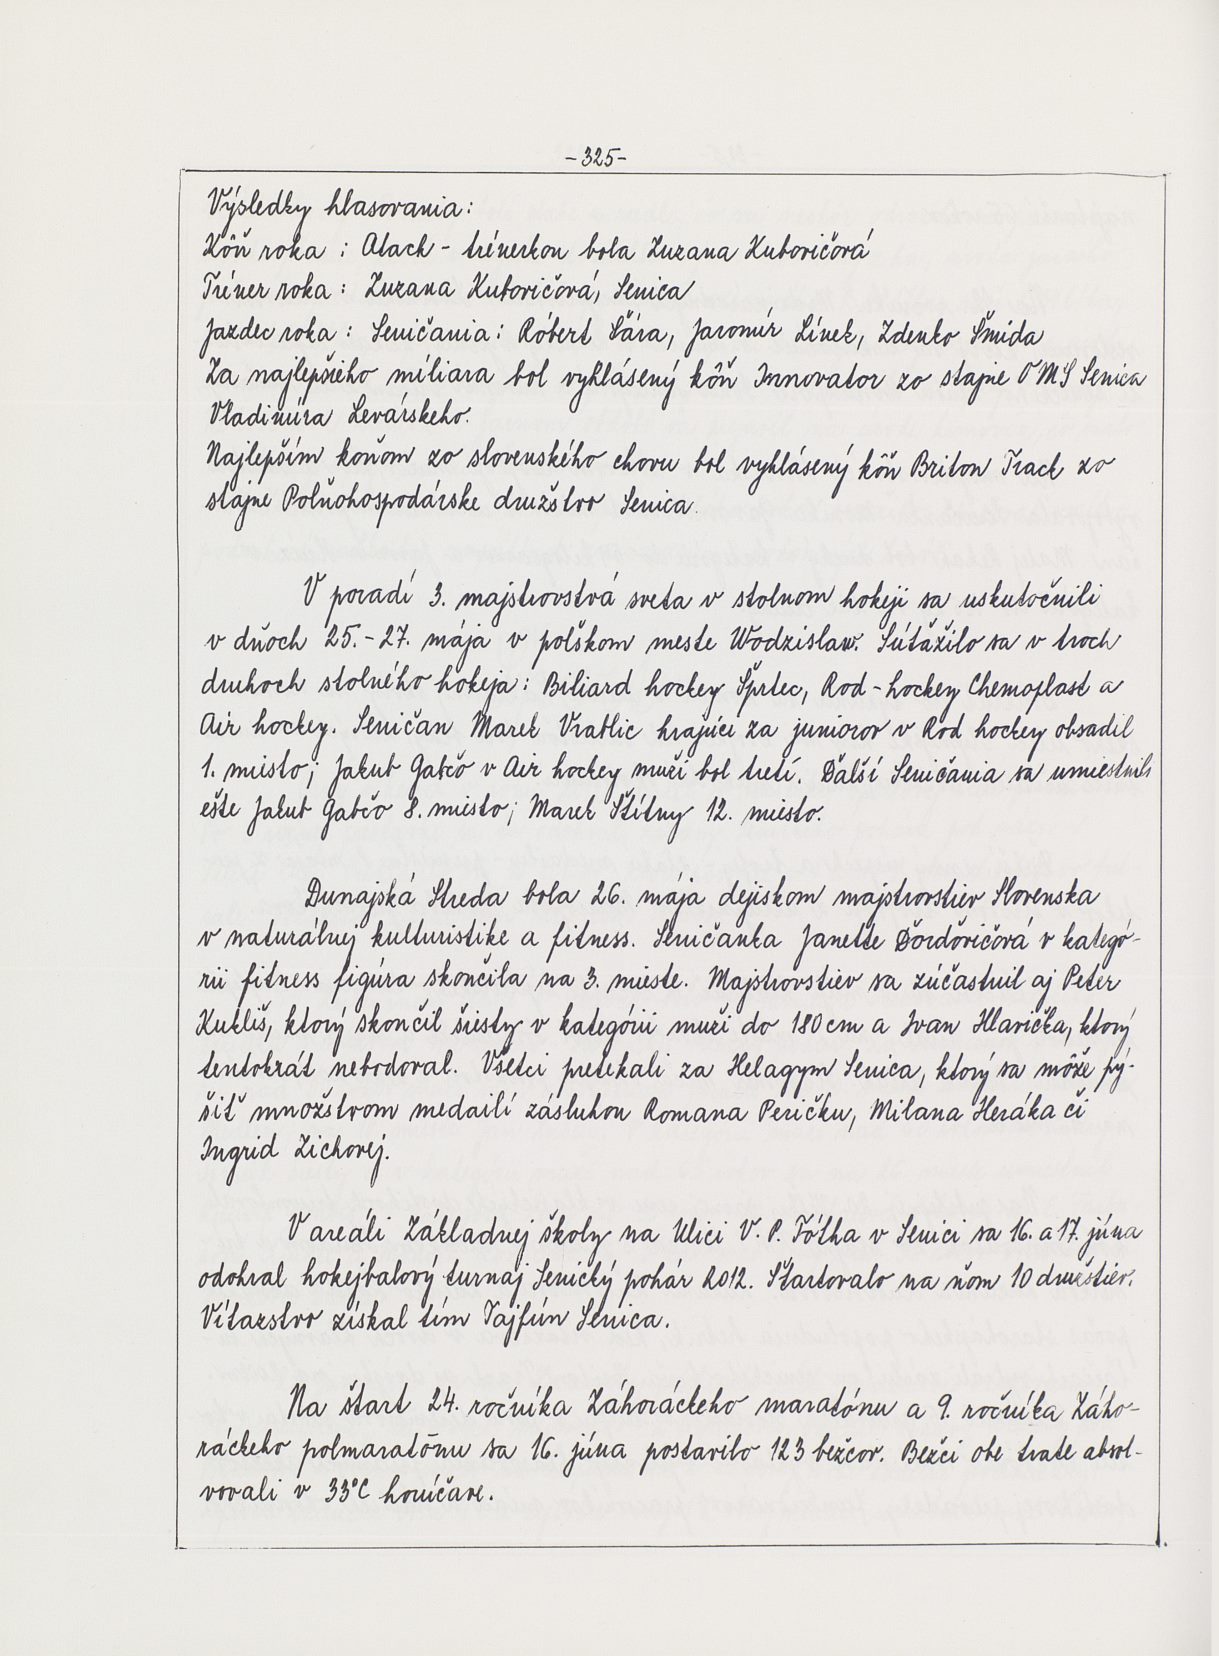 -325-
Výsledky hlasovania:
Kôň roka : Atack - trénerkou bola Zuzana Kubovičová
Tréner roka : Zuzana Kubovičová, Senica
Jazdec roka : Seničania: Róbert Šára, Jaromír Línek, Zdenko Šmida
Za najlepšieho míliara bol vyhlásený kôň Innovator zo stajne OMS Senica
Vladimíra Levárskeho.
Najlepším koňom zo slovenského chovu bol vyhlásený kôň Briton Track zo
stajne Poľnohospodárske družstvo Senica.
V poradí 3. majstrovstvá sveta v stolnom hokeji sa uskutočnili
v dňoch 25.-27. mája v poľskom meste Wodzislaw. Súťažilo sa v troch
druhoch stolného hokeja: Biliard hockey Šprtec, Rod-hockey Chemoplast a
Air hockey. Seničan Marek Vratlic hrajúci za juniorov v Rod hockey obsadil
1. miesto; Jakub Gabčo v Air hockey muži bol tretí. Ďalší Seničania sa umiestnili
ešte Jakub Gabčo 8. miesto; Marek Štítny 12. miesto.
Dunajská Streda bola 26. mája dejiskom majstrovstiev Slovenska
v naturálnej kulturistike a fitness. Seničanka Janette Ďorďovičová v kategó-
rii fitness figúra skončila na 3. mieste. Majstrovstiev sa zúčastnil aj Peter
Kukliš, ktorý skončil šiesty v kategórii muži do 180 cm a Ivan Hlavička, ktorý
tentokrát nebodoval. Všetci pretekali za Helagym Senica, ktorý sa môže pý-
šiť množstvom medailí zásluhou Romana Peričku, Milana Heráka či
Ingrid Zichovej.
V areáli Základnej školy na Ulici V. P. Tótha v Senici sa 16. a 17. júna
odohral hokejbalový turnaj Senický pohár 2012. Štartovalo na ňom 10 družstiev.
Víťazstvo získal tím Tajfún Senica.
Na štart 24. ročníka Záhoráckeho maratónu a 9. ročníka Záho-
ráckeho polmaratónu sa 16. júna postavilo 123 bežcov. Bežci obe trate absol-
vovali v 33°C horúčave.